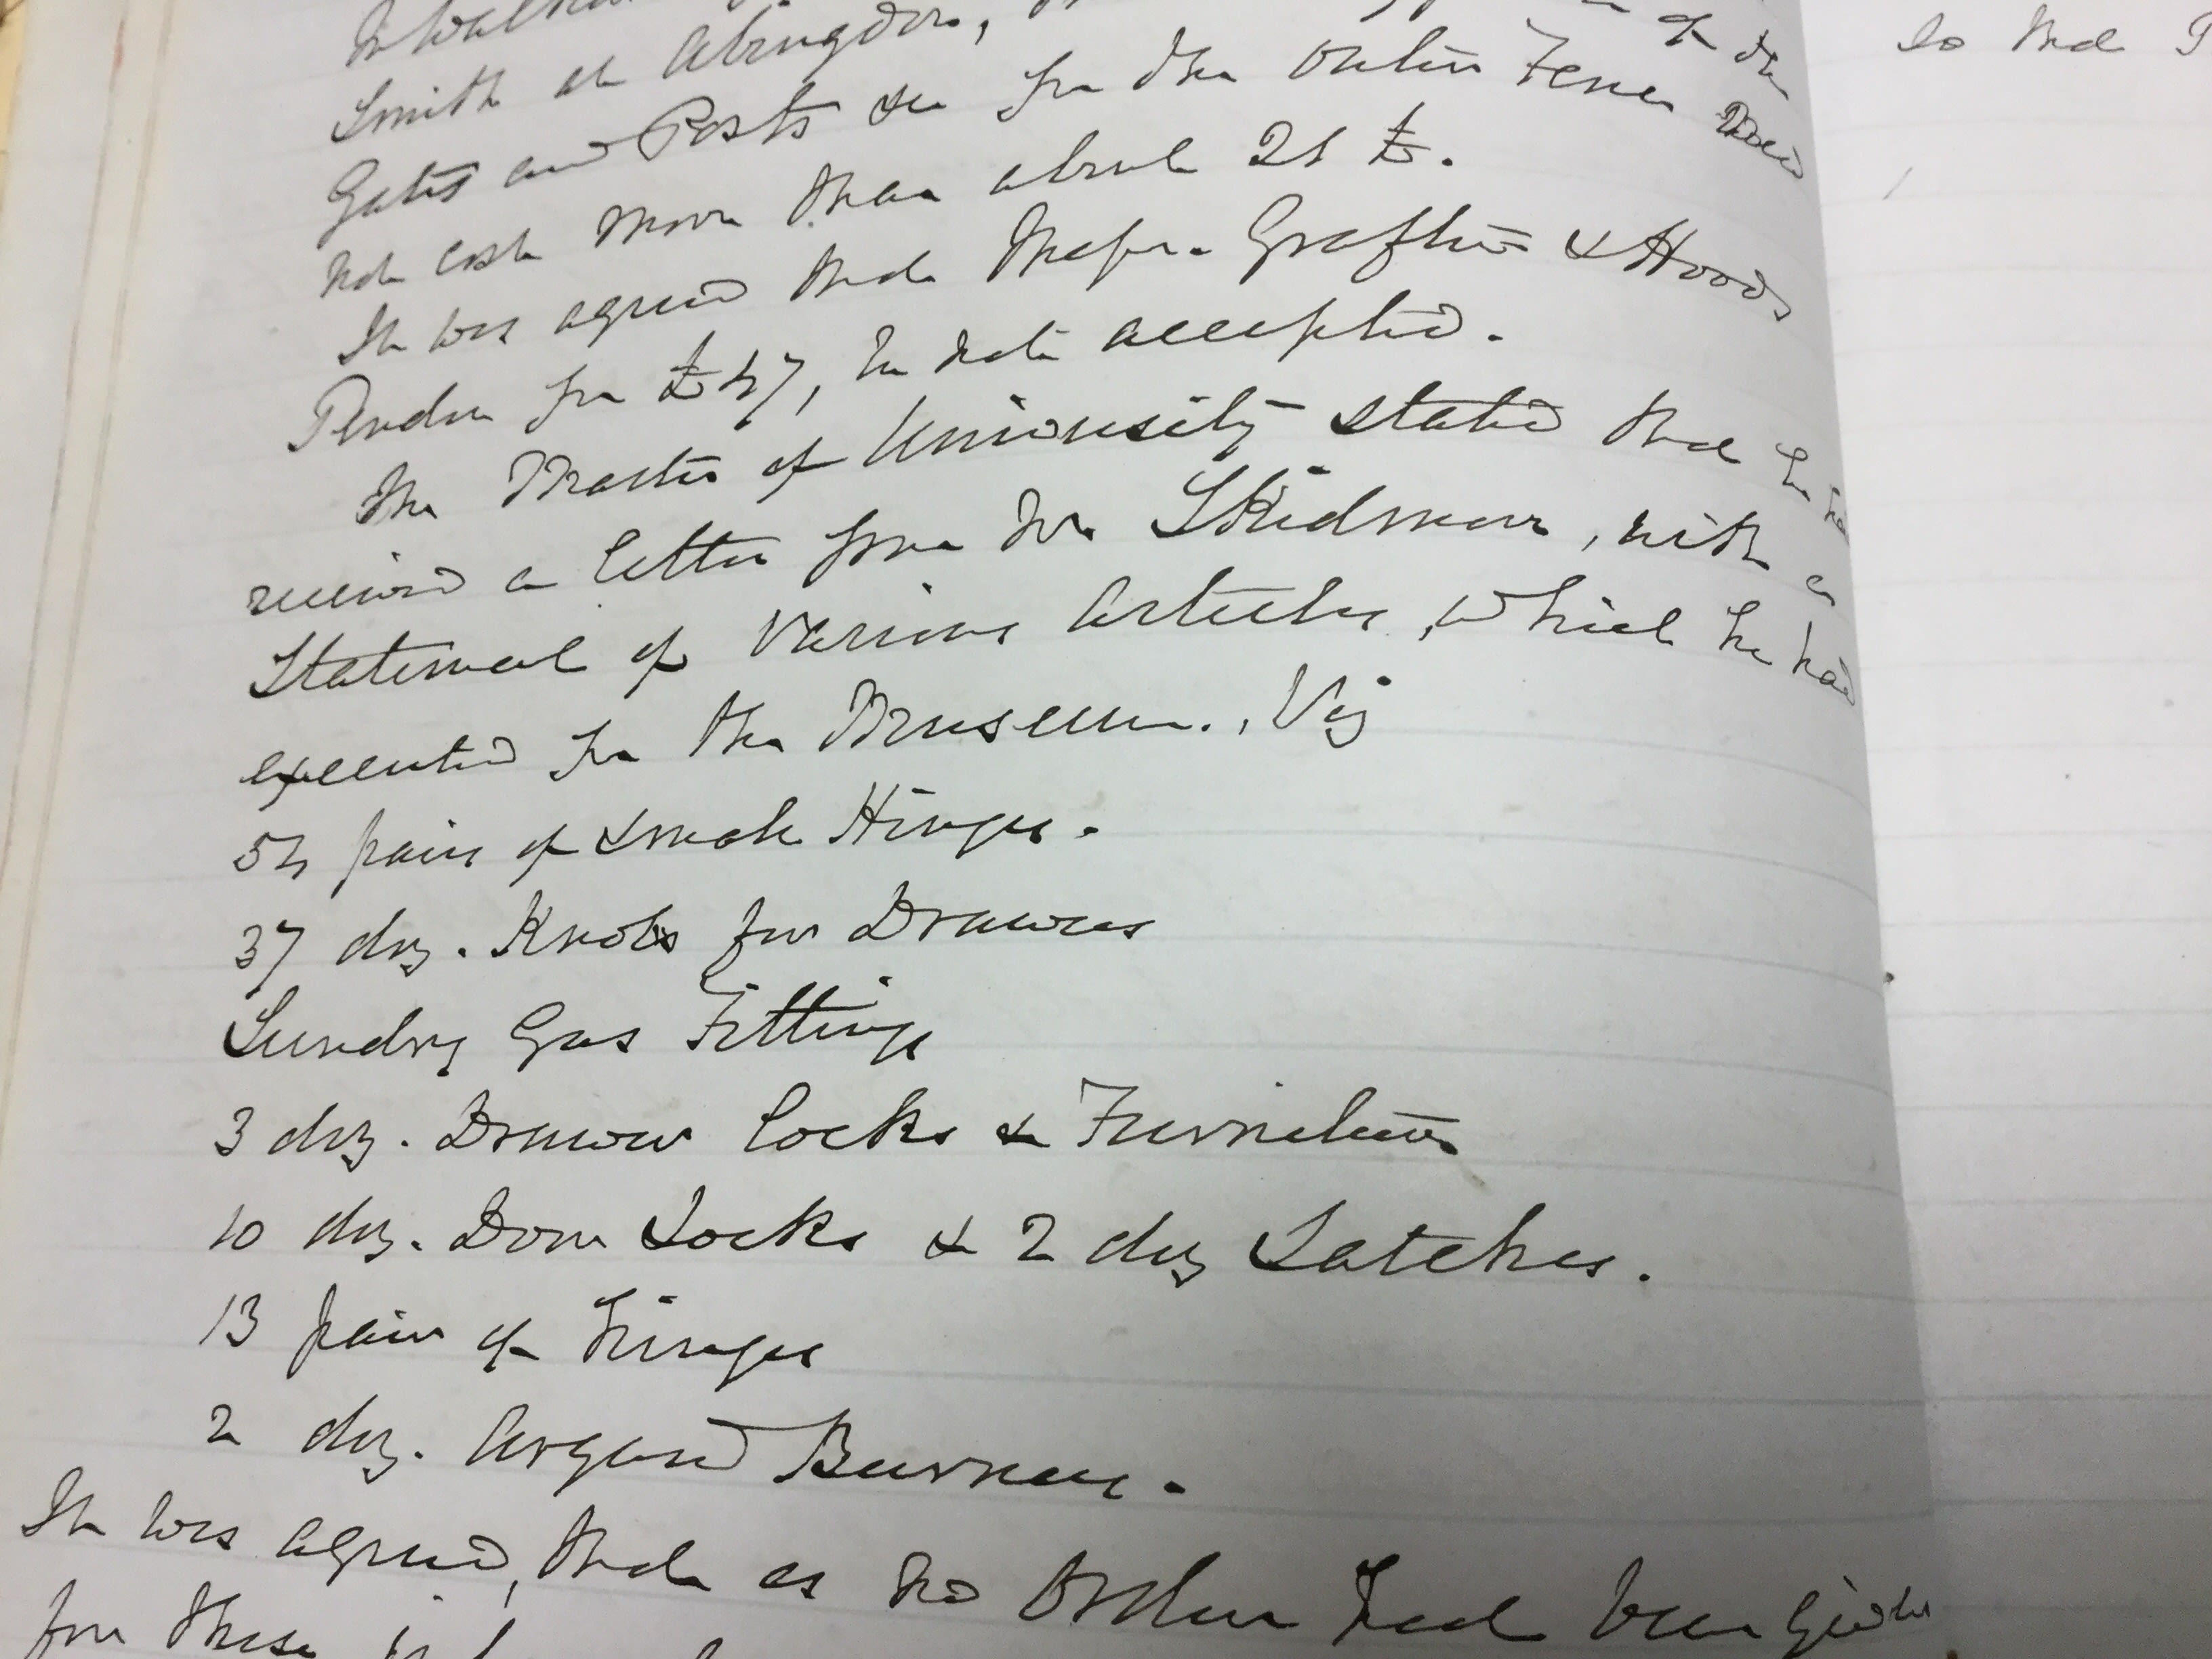 Smith at Abingdon,
Gates and Posts &c for the outer Fence would
not cost more than about 21 £.
It was agreed that Messrs. Grafton & Hoods
Tender for £47, be not accepted.
The Master of University stated that he had
received a letter from Mr Skidmore, with a
Statement of various articles, which he had
executed for the Museum., Viz
54 pairs of small Hinges.
37 doz. Knobs for Drawers
Sundry Gas Fittings
3 doz. Drawer locks & Furniture
10 doz. Door Locks & 2 doz Latches.
13 pair of hinges
2 doz. Argand Burners.
It was agreed, that as no Order had been given
for these
so that